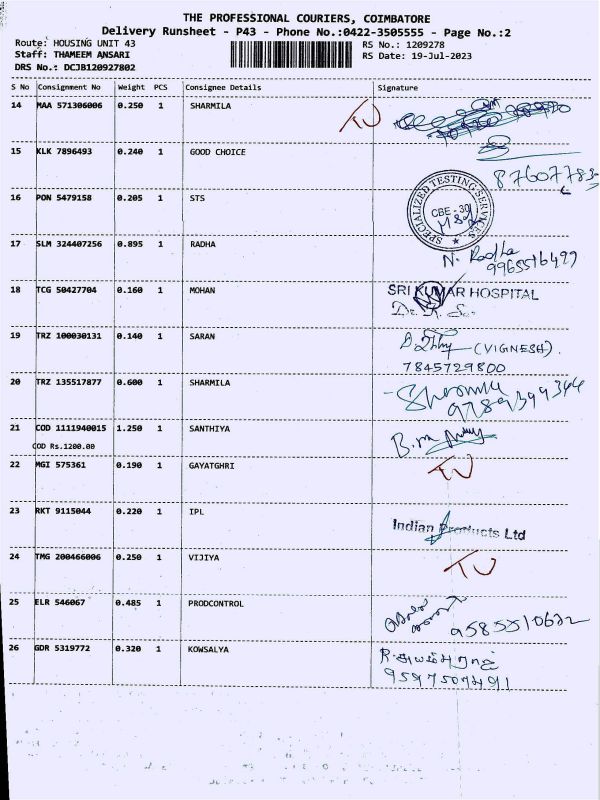 THE PROFESSIONAL COURIERS, COIMBATORE
Delivery Runsheet - P43 - Phone No.:0422-3505555 - Page No.:2
Route: HOUSING UNIT 43 RS No.: 1209278
Staff: THAMEEM ANSARI RS Date: 19-Jul-2023
DRS No.: DCJB120927802
S No Consignment No Weight PCS Consignee Details Signature
14 MAA 571306006 0.250 1 SHARMILA TU
15 KLK 7896493 0.240 1 GOOD CHOICE
8760778
16 PON 5479158 0.205 1 STS
SPECIALIZED TESTING SERVICES
CBE - 30
17 SLM 324407256 0.895 1 RADHA N. Radha
9965516499
18 TCG 50427704 0.160 1 MOHAN SRI KUMAR HOSPITAL
Dr. R.
19 TRZ 100030131 0.140 1 SARAN (VIGNESH).
7845729800
20 TRZ 135517877 0.600 1 SHARMILA
9789394344
21 COD 1111940015 1.250 1 SANTHIYA
COD Rs.1200.00
22 MGI 575361 0.190 1 GAYATGHRI TU
23 RKT 9115044 0.220 1 IPL Indian Products Ltd
24 TMG 200466006 0.250 1 VIJIYA TU
25 ELR 546067 0.485 1 PRODCONTROL
9585510622
26 GDR 5319772 0.320 1 KOWSALYA
9597507491